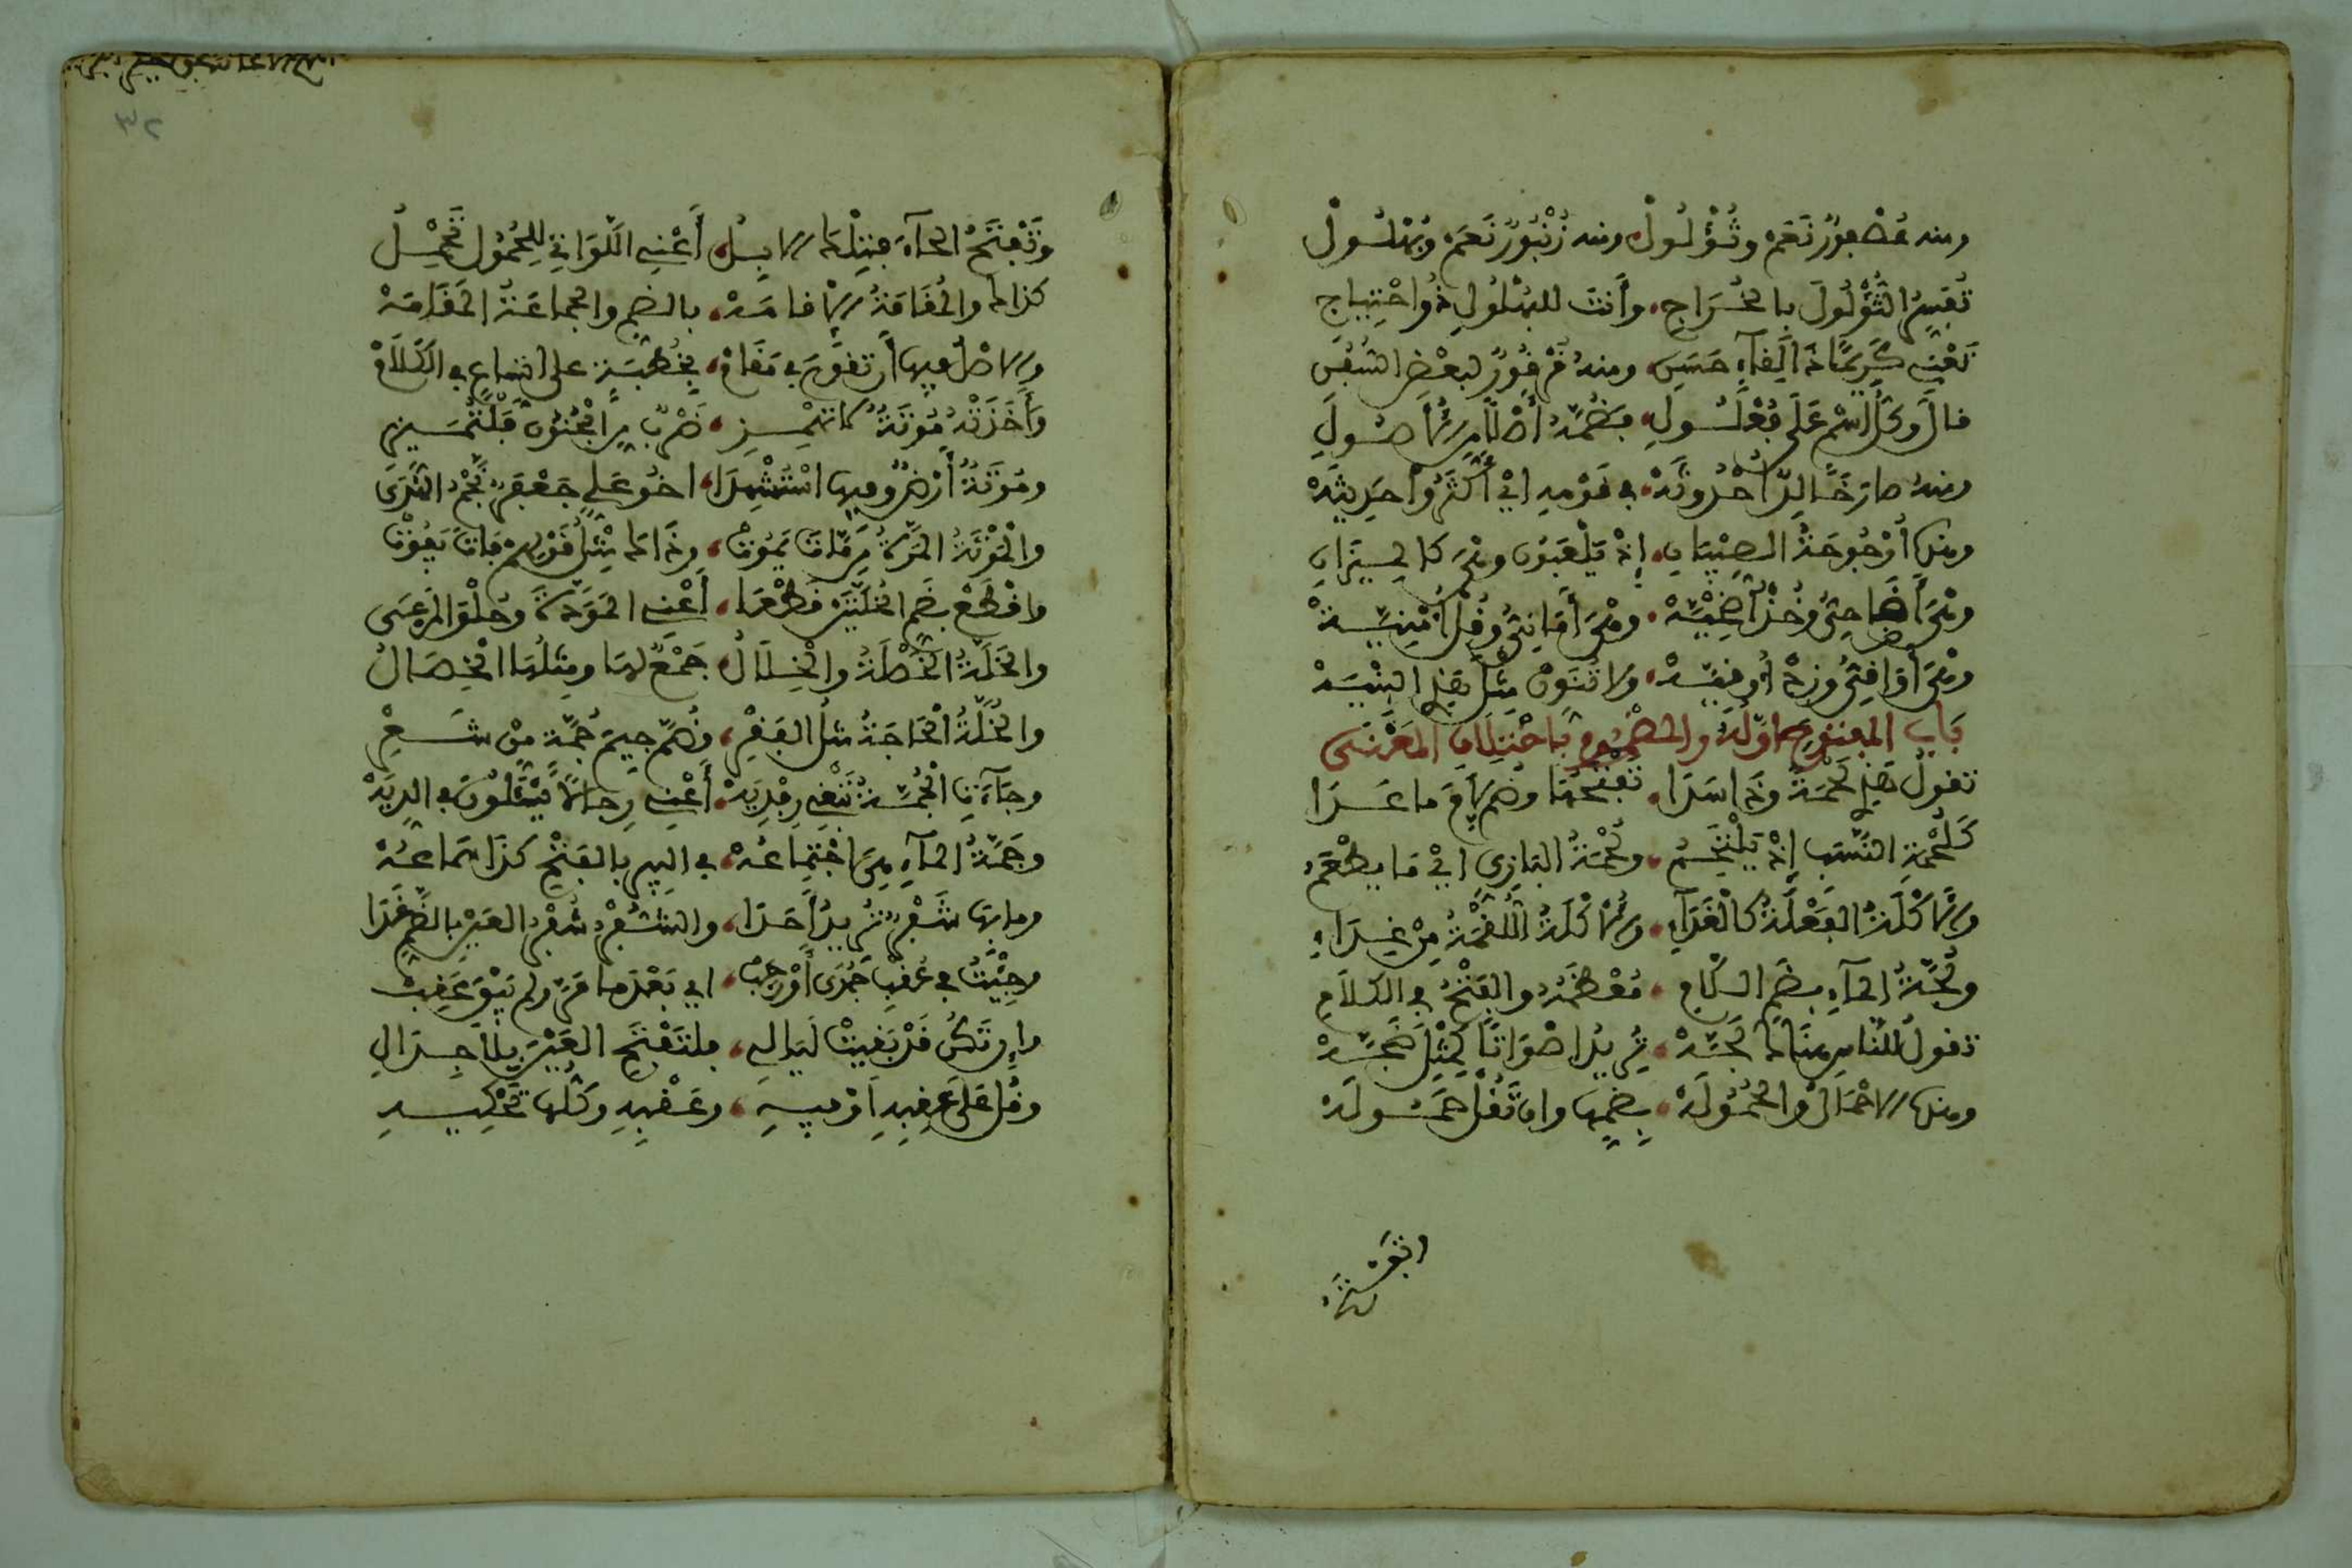 ومنه عُصْفُورٌ نَعَمْ وثُؤْلُولْ ومنه زُنْبُورٌ نَعَمْ وبُهْلُولْ
تُفَسِّرُ الثُّؤْلُولَ بالخُرَاجِ وأنتَ للبُهْلُولِ ذُو احْتِيَاجِ
تَعْنِي كَرِيمًا ذَا لِقَاءٍ حَسَنِ ومنهُ قُرْقُورٌ لبعْضِ السُّفُنِ
قال وكُلُّ اسْمٍ عَلَى فُعْلُولِ فضُمَّهُ أَصْلًا من الأُصُولِ
ومنهُ صارَ خَالِدٌ أُحْدُوثَهْ في قَوْمِهِ أيْ أكْثَرُوا حَدِيثَهْ
ومنها أُرْجُوحَةُ الصِّبْيَانِ إذْ يَلْعَبُونَ وهْيَ كالمِيزَانِ
وهْيَ أَضَاحِيُّ وخُذْ أُضْحِيَّهْ وهْيَ أَمَانِيُّ وقُلْ أُمْنِيَّهْ
وهْيَ أَوَاقِيُّ وزِدْ أُوقِيَّهْ ولا تُنَوِّنْ مِثْلَ هَذِي البِنْيَهْ
بَابُ المفتوحِ أوّلُهُ والمضْمُومِ بِاخْتِلَافِ المَعْنَى
تقولُ هَذِي لَحْمَةٌ وذَا سَدَا تفْتَحُهَا وضُمَّهَا فِي مَا عَدَا
كَلُحْمَةِ النَّسَبِ إذْ يَلْتَحِمُ ولُحْمَةُ البَازِي أيْ مَا يطْعَمُ
والأَكْلَةُ الفَعْلَةُ كالْغَدَآءِ والأُكْلَةُ اللُّقْمَةُ مِنْ غِذَاءِ
ولُجَّةُ المآءِ بضَمِّ اللَّامِ مُعْظَمُهُ والفَتْحُ في الكَلَامِ
تقولُ للنَّاسِ هُنَالِكَ لَجَّهْ تُرِيدُ أصْوَاتًا كَمِثْلِ ضَجَّهْ
ومنها الأحْمَالُ والحُمُولَهْ بضَمِّهَا وإن تَقُلْ حَمُولَهْ
ابقيه
وتَفْتَحُ الحآءَ فتِلْكَ الإبِلُ أَعْنِي اللَّوَاتِي لِلحُمُولِ تَحْمِلُ
كذاك والمُقَامَةُ الإقامَهْ بالضمِّ والجماعَةُ المَقَامَهْ
والأصلُ فيها أنْ تقُومَ في مَقَامْ بخُطْبَةٍ على اتساعٍ في الكَلَامْ
وأَخَذَتْهُ مُوتَةٌ لا تهْمِزِ ضَرْبٌ مِن الْجُنُونِ فَلْتُمَيِّزِ
ومُؤْتَةٌ أَرْضٌ وفيها اسْتُشْهِدَا أخُو عَلِيٍّ جَعْفَرٌ نَجْمُ الهُدَى
والْمَوْتَةُ المَرَّةُ مِن مَاتَ يَمُوتْ وذَاكَ مِثْلُ قَوْلِهِمْ فَاتَ يَفُوتْ
واقْطَعْ بضَمِّ الخُلَّتَيْنِ قطْعَا أَعْنِي المَوَدَّةَ وحُلْوَ المَرْعَى
والخَلَّةُ الخَصْلَةُ والْخِلَالُ جَمْعٌ لهَا ومِثلُهَا الخِصَالُ
والخَلَّةُ الْحَاجَةُ مثلُ الفَقْرِ وضُمَّ جِيمَ جُمَّةٍ مِنْ شَعْرِ
وجَآءَنِي الْجُمَّةُ تَبْغِي رِفْدِيَهْ أَعْنِي رِجَالًا يَسْأَلُونَ في الدِّيَهْ
وجَمَّةُ المآءِ هِيَ اجْتِمَاعُهْ في البِيرِ بالفَتْحِ كذَا سَمَاعُهْ
وما بهَا شَفْرٌ تُرِيدُ أَحَدَا والشُّفْرُ شُفْرُ العَيْنِ بالضَّمِّ غَدَا
وجِئْتُ في عُقْبِ جُمَادَى أوْ رجَبْ أي بَعْدَ ما مَرَّ ولم يَبْقَ عَقِبْ
وإن تَكُنْ قَدْ بَقِيَتْ لَيَالِ فلتَفْتَحِ العَيْنَ بِلَا جِدَالِ
وقُلْ عَلَى عَقِبِهِ أوْ فِيهِ وعَقْبِهِ وكُلُّهَا تَحْكِيهِ
٣٢